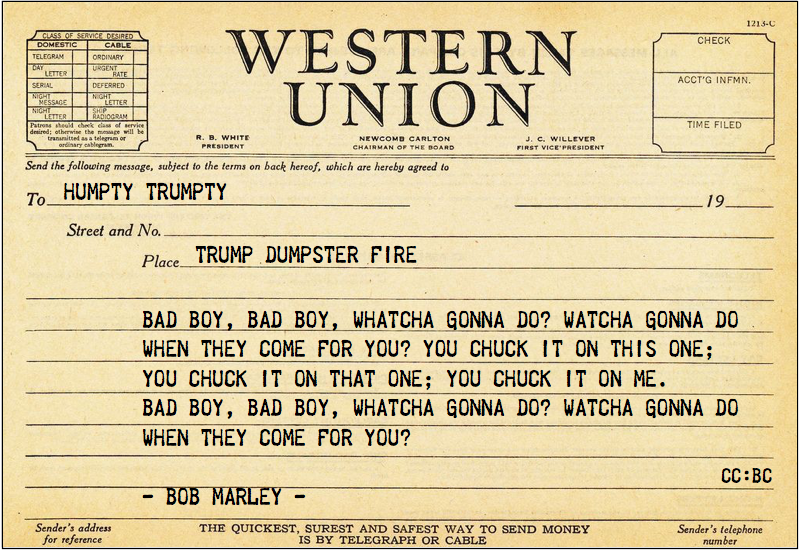 1213-C
CLASS OF SERVICE DESIRED
DOMESTIC CABLE
TELEGRAM ORDINARY
DAY LETTER URGENT RATE
SERIAL DEFERRED
NIGHT MESSAGE NIGHT LETTER
NIGHT LETTER SHIP RADIOGRAM
Patrons should check class of service
desired; otherwise the message will be
transmitted as a telegram or
ordinary cablegram.
WESTERN
UNION
CHECK
ACCT'G INFMN.
TIME FILED
R. B. WHITE NEWCOMB CARLTON J. C. WILLEVER
PRESIDENT CHAIRMAN OF THE BOARD FIRST VICE-PRESIDENT
Send the following message, subject to the terms on back hereof, which are hereby agreed to
To HUMPTY TRUMPTY 19
Street and No.
Place TRUMP DUMPSTER FIRE
BAD BOY, BAD BOY, WHATCHA GONNA DO? WATCHA GONNA DO
WHEN THEY COME FOR YOU? YOU CHUCK IT ON THIS ONE;
YOU CHUCK IT ON THAT ONE; YOU CHUCK IT ON ME.
BAD BOY, BAD BOY, WHATCHA GONNA DO? WATCHA GONNA DO
WHEN THEY COME FOR YOU?
CC:BC
- BOB MARLEY -
Sender's address
for reference
THE QUICKEST, SUREST AND SAFEST WAY TO SEND MONEY
IS BY TELEGRAPH OR CABLE
Sender's telephone
number